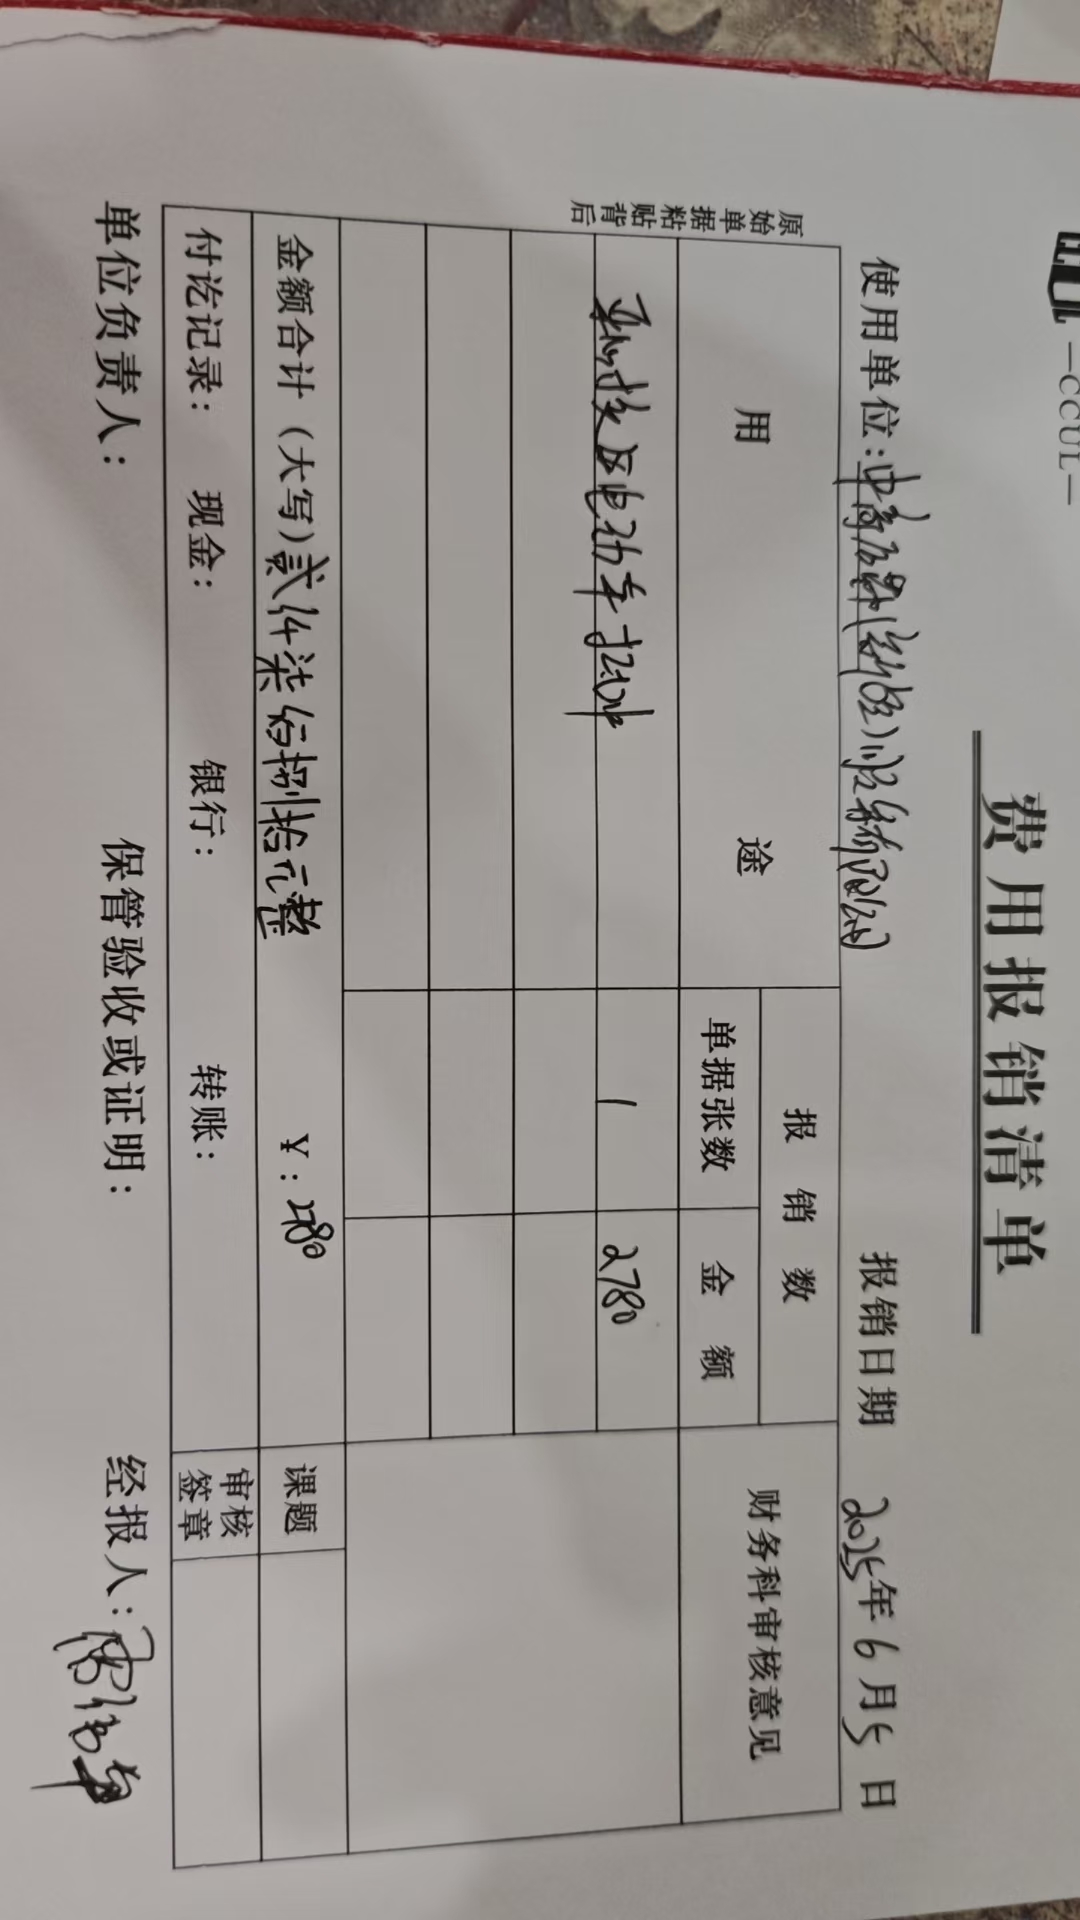 —CCUL—
费用报销清单
使用单位: 报销日期 2025年6月5日
原始单据粘贴背后
用途 报销数 财务科审核意见
单据张数 金额
电动车 1 2780
金额合计（大写）贰仟柒佰捌拾元整 ¥：2780 课题
付讫记录： 现金： 银行： 转账： 审核签章
单位负责人： 保管验收或证明： 经报人：